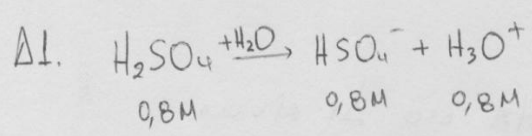 Δ1. H₂SO₄ +H₂O → HSO₄⁻ + H₃O⁺
0,8M 0,8M 0,8M